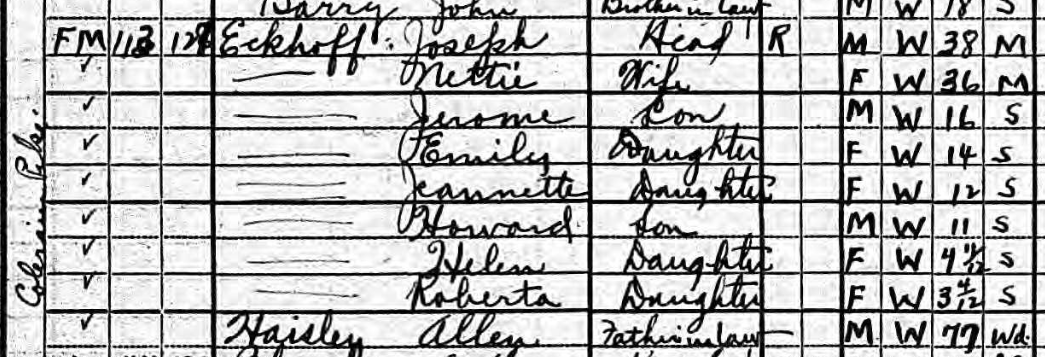 Barry John Brother in law M W 18 S
FM 113 Eckhoff Joseph Head R M W 38 M
✓ — Nettie Wife F W 36 M
✓ — Jerome Son M W 16 S
✓ — Emily Daughter F W 14 S
✓ — Jeannette Daughter F W 12 S
✓ — Howard Son M W 11 S
✓ — Helen Daughter F W S
✓ — Roberta Daughter F W 3 4/12 S
✓ Haisley Allen Father in law — M W 77 Wd.
Colerain